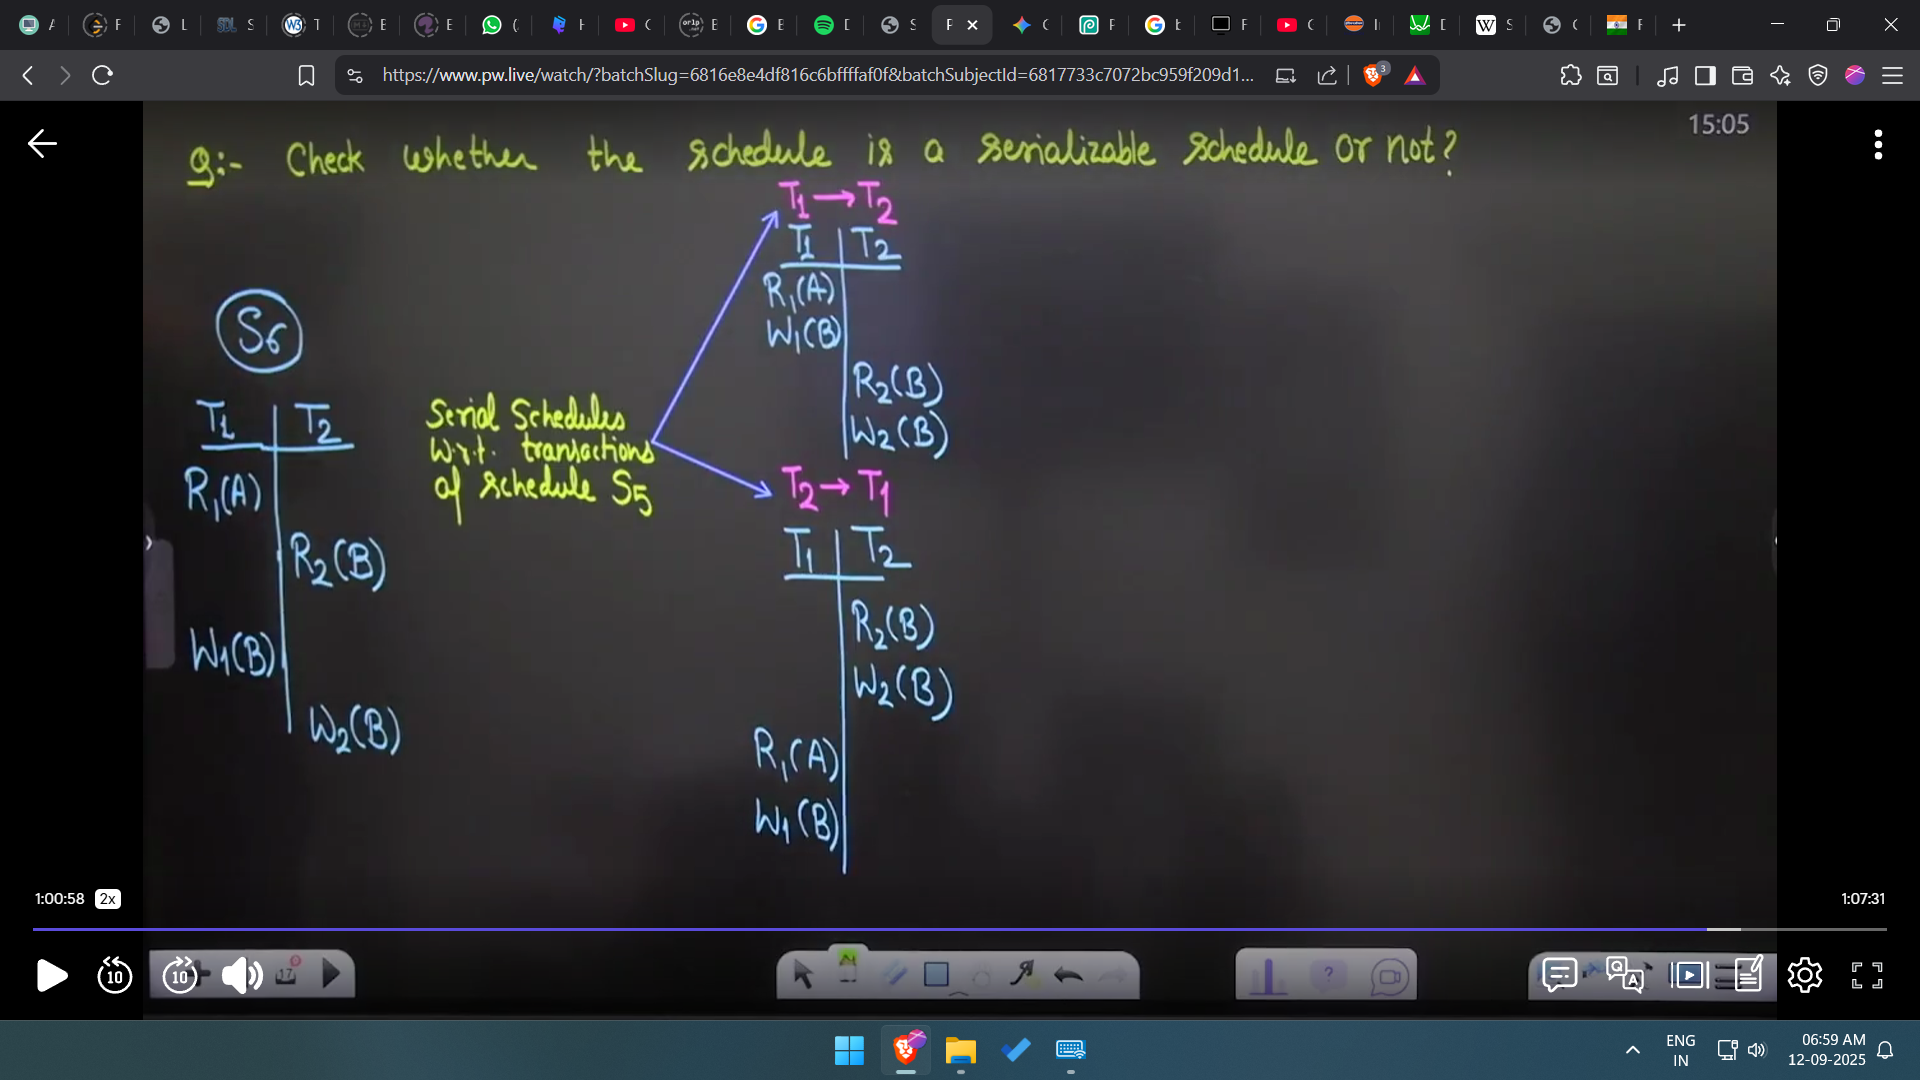 https://www.pw.live/watch/?batchSlug=6816e8e4df816c6bffffaf0f&batchSubjectId=6817733c7072bc959f209d1...
3
15:05
Q:- Check whether the schedule is a serializable schedule or not?
T1 → T2
T1 T2
R1(A)
W1(B)
R2(B)
W2(B)
S6
T1 T2
R1(A)
R2(B)
W1(B)
W2(B)
Serial Schedules
w.r.t. transactions
of schedule S5
T2 → T1
T1 T2
R2(B)
W2(B)
R1(A)
W1(B)
1:00:58 2x
1:07:31
10
10
17
ENG
IN
06:59 AM
12-09-2025